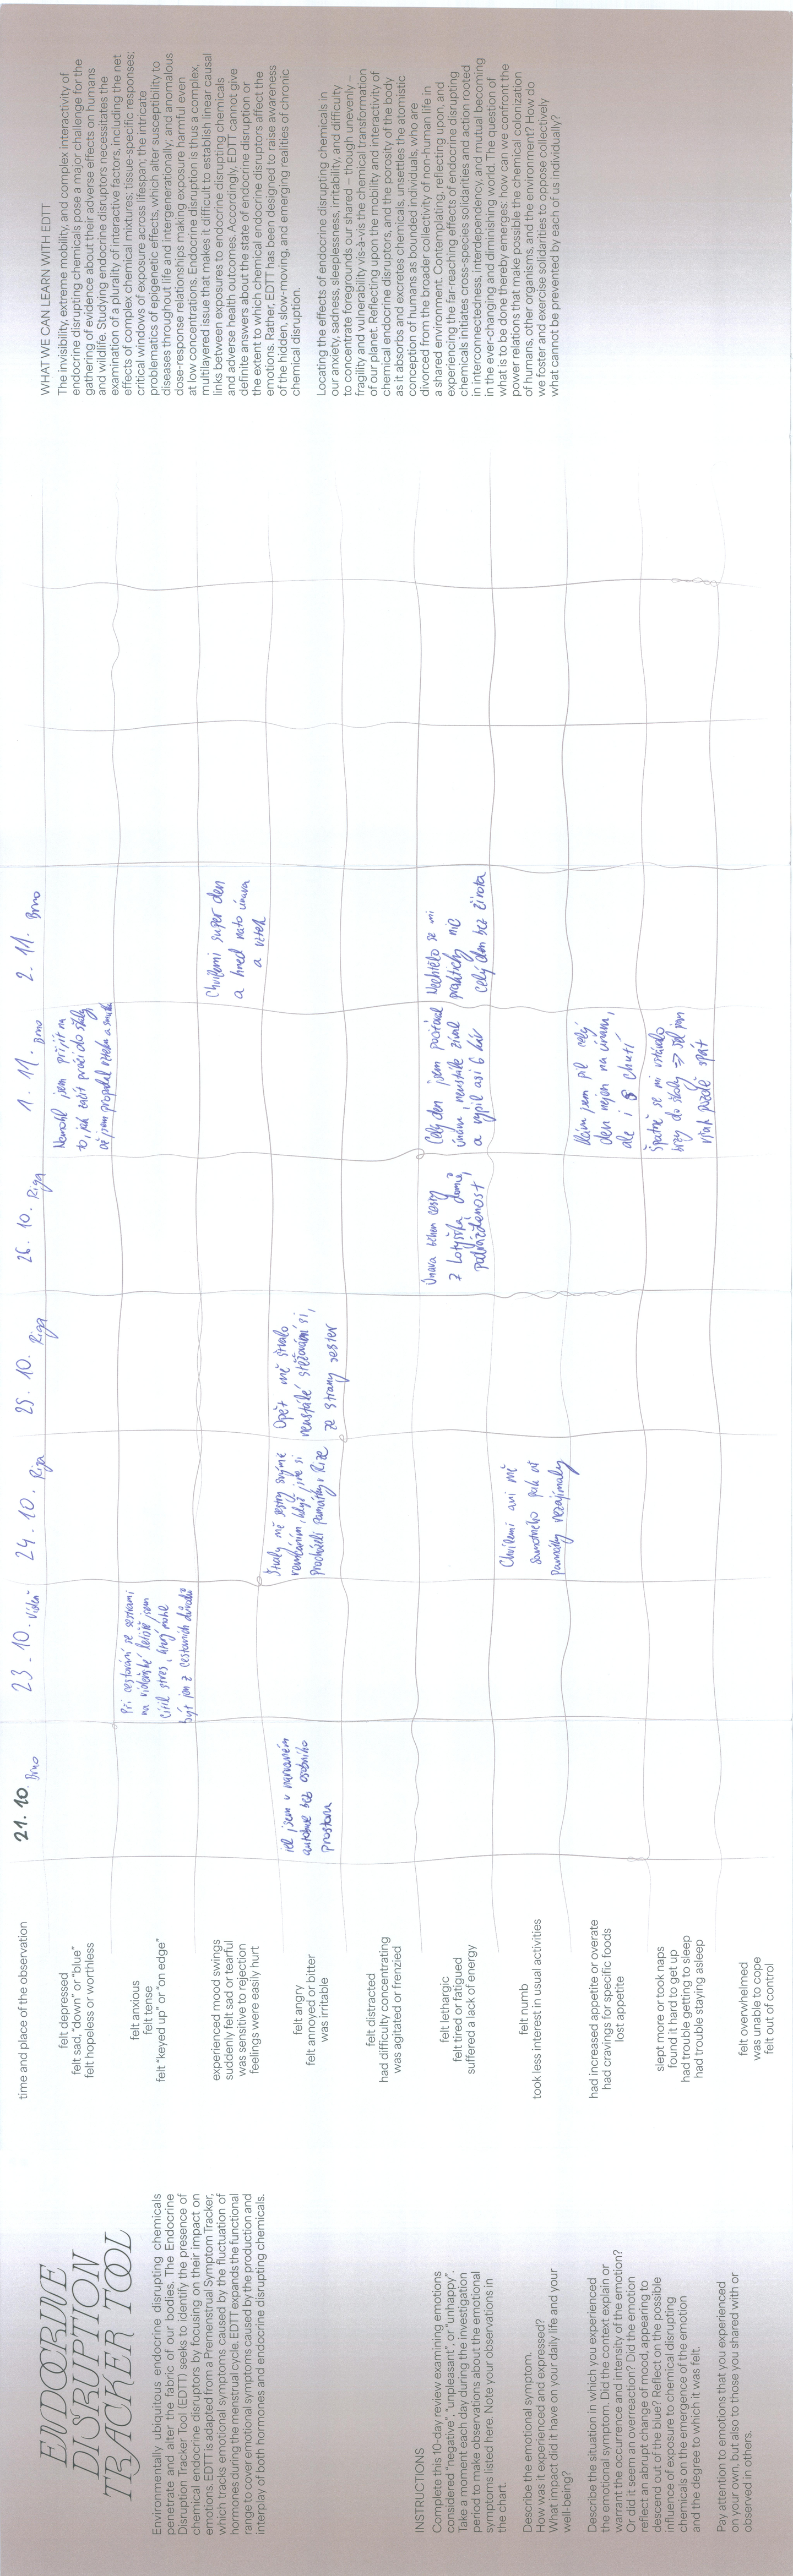 ENDOCRINE
DISRUPTION
TRACKER TOOL
Environmentally ubiquitous endocrine disrupting chemicals
penetrate and alter the fabric of our bodies. The Endocrine
Disruption Tracker Tool (EDTT) seeks to identify the presence of
chemical endocrine disruptors by focusing on their impact on
emotions. EDTT is adapted from a Premenstrual Symptom Tracker,
which tracks emotional symptoms caused by the fluctuation of
hormones during the menstrual cycle. EDTT expands the functional
range to cover emotional symptoms caused by the production and
interplay of both hormones and endocrine disrupting chemicals.
INSTRUCTIONS
Complete this 10-day review examining emotions
considered “negative”, “unpleasant”, or “unhappy”.
Take a moment each day during the investigation
period to make observations about the emotional
symptoms listed here. Note your observations in
the chart.
Describe the emotional symptom.
How was it experienced and expressed?
What impact did it have on your daily life and your
well-being?
Describe the situation in which you experienced
the emotional symptom. Did the context explain or
warrant the occurrence and intensity of the emotion?
Or did it seem an overreaction? Did the emotion
reflect an abrupt change of mood, appearing to
descend out of the blue? Reflect on the possible
influence of exposure to chemical disrupting
chemicals on the emergence of the emotion
and the degree to which it was felt.
Pay attention to emotions that you experienced
on your own, but also to those you shared with or
observed in others.
time and place of the observation
21. 10. Brno
23. 10. Vídeň
24. 10. Riga
25. 10. Riga
26. 10. Riga
1. 11. Brno
2. 11. Brno
felt depressed
felt sad, “down” or “blue”
felt hopeless or worthless
Nemohl jsem přijít na
to, jak začít práci do školy
až jsem propadal vzteku a smutku
felt anxious
felt tense
felt “keyed up” or “on edge”
Při cestování se sestrami
na vídeňské letiště jsem
cítil stres, který mohl
být jen z cestovních důvodů
experienced mood swings
suddenly felt sad or tearful
was sensitive to rejection
feelings were easily hurt
Chvílemi super den
a hned nato únava
a vztek
felt angry
felt annoyed or bitter
was irritable
jel jsem v narvaném
autobuse bez osobního
prostoru
Štvaly mě sestry svojím
když jsme si
procházeli památky v Rize
Opět mě štvalo
neustálé stěžování si,
ze strany sester
felt distracted
had difficulty concentrating
was agitated or frenzied
felt lethargic
felt tired or fatigued
suffered a lack of energy
Únava během cesty
z Lotyšska domů,
podrážděnost
Celý den jsem pociťoval
únavu, neustále zíval
a vypil asi 6 káv
Nechtělo se mi
prakticky nic
celý den bez života
felt numb
took less interest in usual activities
Chvílemi ani mě
samotného pak už
památky nezajímaly
had increased appetite or overate
had cravings for specific foods
lost appetite
jsem pil celý
den nejen na únavu,
ale i chutí
slept more or took naps
found it hard to get up
had trouble getting to sleep
had trouble staying asleep
Špatně se mi vstávalo
brzy do školy => šel jsem
však pozdě spát
felt overwhelmed
was unable to cope
felt out of control
WHAT WE CAN LEARN WITH EDTT
The invisibility, extreme mobility, and complex interactivity of
endocrine disrupting chemicals pose a major challenge for the
gathering of evidence about their adverse effects on humans
and wildlife. Studying endocrine disruptors necessitates the
examination of a plurality of interactive factors, including the net
effects of complex chemical mixtures; tissue-specific responses;
critical windows of exposure across lifespan; the intricate
problematics of epigenetic effects, which alter susceptibility to
diseases throughout life and intergenerationally; and anomalous
dose-response relationships making exposure harmful even
at low concentrations. Endocrine disruption is thus a complex,
multilayered issue that makes it difficult to establish linear causal
links between exposures to endocrine disrupting chemicals
and adverse health outcomes. Accordingly, EDTT cannot give
definite answers about the state of endocrine disruption or
the extent to which chemical endocrine disruptors affect the
emotions. Rather, EDTT has been designed to raise awareness
of the hidden, slow-moving, and emerging realities of chronic
chemical disruption.
Locating the effects of endocrine disrupting chemicals in
our anxiety, sadness, sleeplessness, irritability, and difficulty
to concentrate foregrounds our shared – though unevenly –
fragility and vulnerability vis-à-vis the chemical transformation
of our planet. Reflecting upon the mobility and interactivity of
chemical endocrine disruptors, and the porosity of the body
as it absorbs and excretes chemicals, unsettles the atomistic
conception of humans as bounded individuals, who are
divorced from the broader collectivity of non-human life in
a shared environment. Contemplating, reflecting upon, and
experiencing the far-reaching effects of endocrine disrupting
chemicals initiates cross-species solidarities and action rooted
in interconnectedness, interdependency, and mutual becoming
in the ever-changing and diminishing world. The question of
what is to be done thereby emerges: how can we confront the
power relations that make possible the chemical colonization
of humans, other organisms, and the environment? How do
we foster and exercise solidarities to oppose collectively
what cannot be prevented by each of us individually?